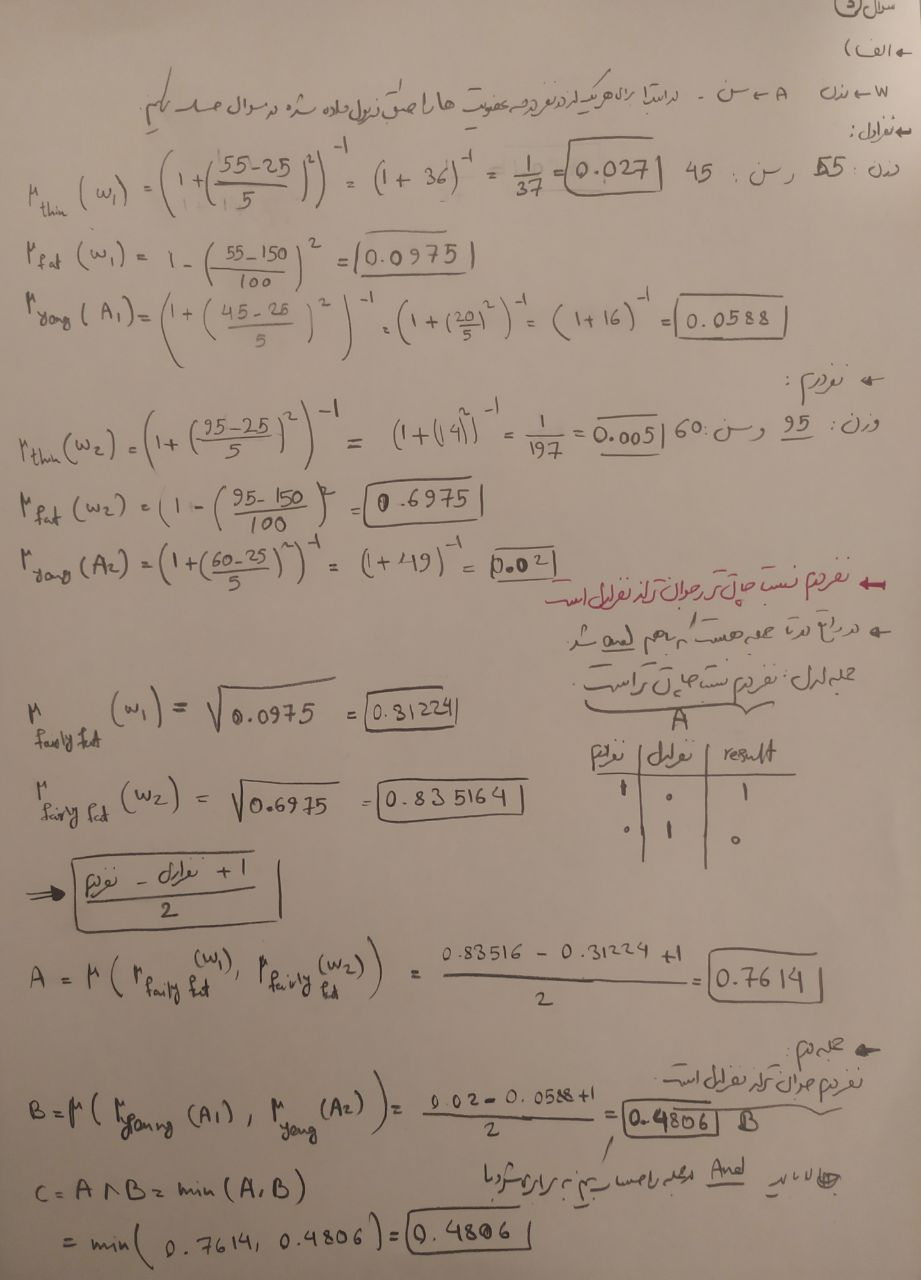 سوال ③
← الف)
W ← وزن    A ← سن - در ابتدا برای هر یک از دو نفر درجه عضویت ها را طبق فرمول داده شده در سوال حساب می‌کنیم.
← نفر اول:
وزن: 55 و سن: 45
μ_thin (w₁) = (1 + ((55-25)/5)²)⁻¹ = (1 + 36)⁻¹ = 1/37 = 0.027
μ_fat (w₁) = 1 - ((55-150)/100)² = 0.0975
μ_yong (A₁) = (1 + ((45-25)/5)²)⁻¹ = (1 + (20/5)²)⁻¹ = (1 + 16)⁻¹ = 0.0588
← نفر دوم:
وزن: 95 و سن: 60
μ_thin (w₂) = (1 + ((95-25)/5)²)⁻¹ = (1 + (14)²)⁻¹ = 1/197 = 0.005
μ_fat (w₂) = (1 - ((95-150)/100)² = 0.6975
μ_yong (A₂) = (1 + ((60-25)/5)²)⁻¹ = (1 + 49)⁻¹ = 0.02
← نفر دوم نسبتا چاق تر و جوان تر از نفر اول است
← در واقع دو تا جمله هست که باهم and شد.
جمله اول: نفر دوم نسبتا چاق تر است.
A
نفر دوم | نفر اول | result
1 | 0 | 1
0 | 1 | 0
μ_fairly fat (w₁) = √0.0975 = 0.31224
μ_fairly fat (w₂) = √0.6975 = 0.835164
⇒ (نفر دوم - نفر اول + 1)/2
A = μ(μ_fairly fat (w₁), μ_fairly fat (w₂)) = (0.83516 - 0.31224 + 1)/2 = 0.7614
← جمله دوم:
نفر دوم جوان تر از نفر اول است
B = μ(μ_young (A₁), μ_yong (A₂)) = (0.02 - 0.0588 + 1)/2 = 0.4806 B
باید And دو جمله را حساب کنیم که برابر می شود با
C = A ∧ B = min (A, B)
= min( 0.7614, 0.4806 ) = 0.4806